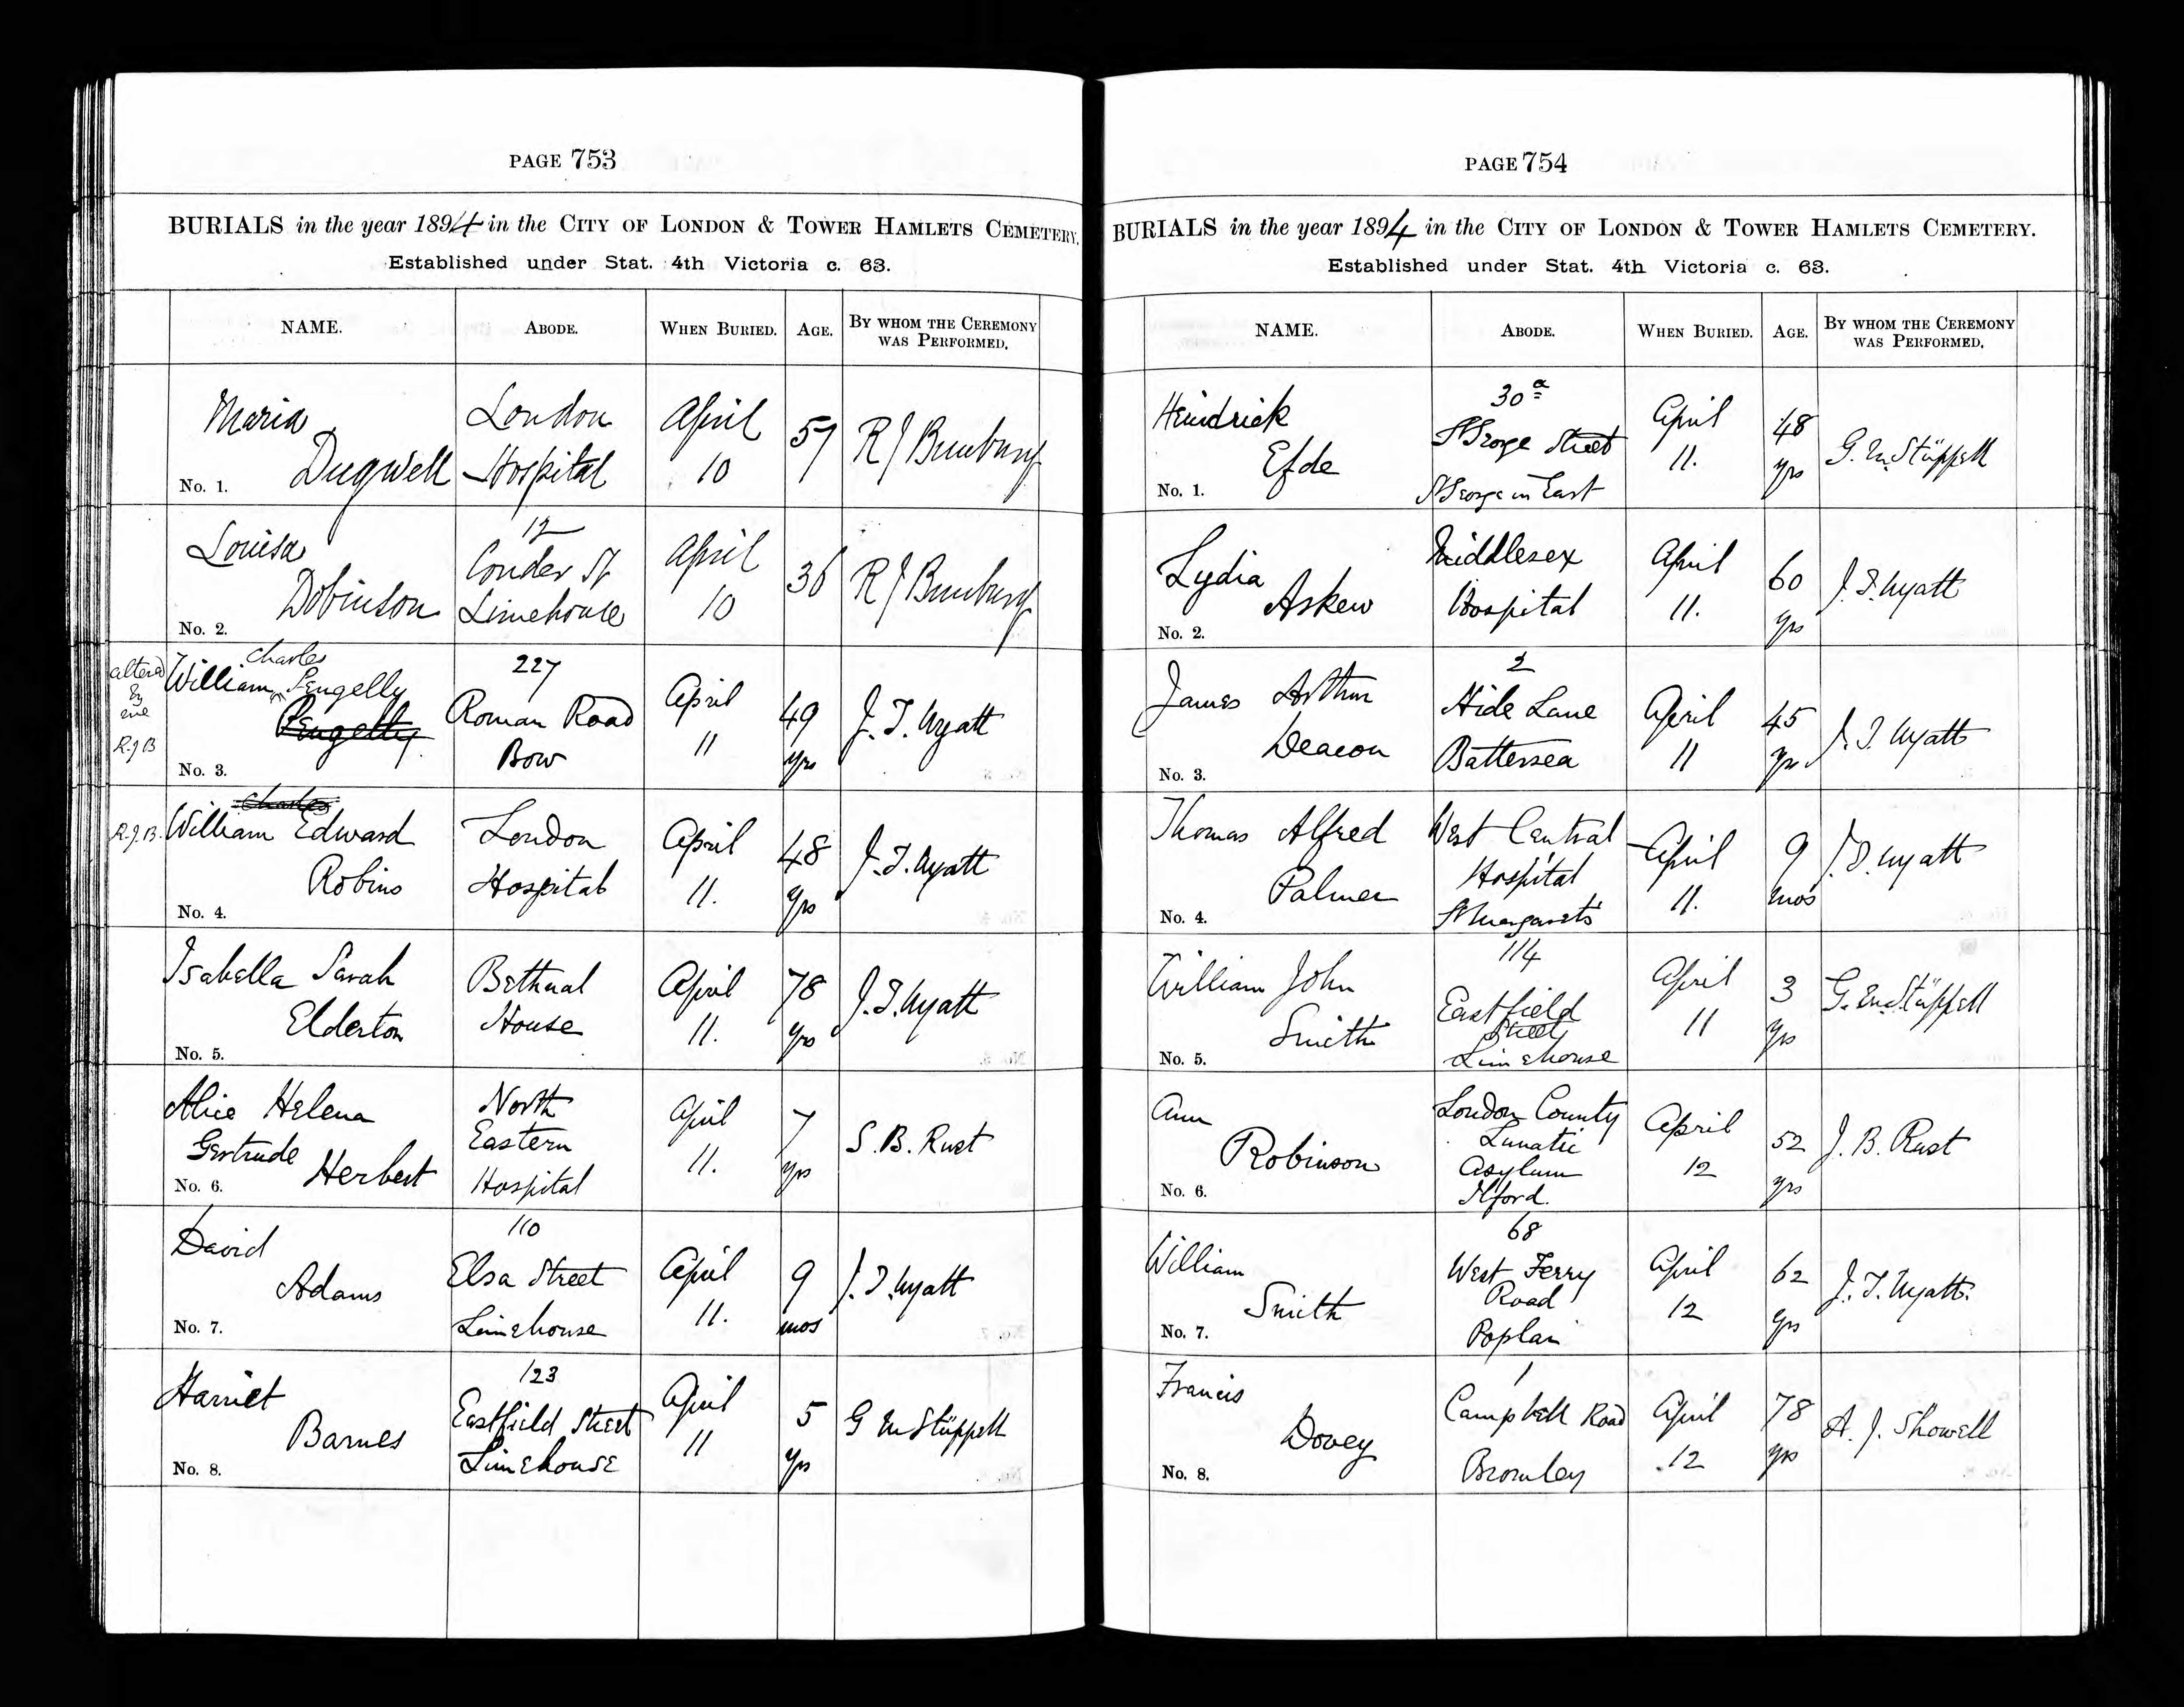 PAGE 753
BURIALS in the year 1894 in the CITY OF LONDON & TOWER HAMLETS CEMETERY.
Established under Stat. 4th Victoria c. 63.
NAME. ABODE. WHEN BURIED. AGE. BY WHOM THE CEREMONY
WAS PERFORMED.
Maria London April 57 R J Bunbury
No. 1. Dugwell Hospital 10
12
Louisa Conder St April 36 R J Bunbury
No. 2. Dobinson Limehouse 10
altered Charles 227
by William Pengelly Roman Road April 49 J. T. Wyatt
me Pengelly Bow 11 yrs
R.J.B
No. 3.
Charles
R.J.B. William Edward London April 48 J. T. Wyatt
Robins Hospital 11. yrs
No. 4.
Isabella Sarah Bethnal April 78 J. T. Wyatt
Elderton House 11. yrs
No. 5.
Alice Helena North April 7 S. B. Rust
Gertrude Eastern 11. yrs
No. 6. Herbert Hospital
110
David Elsa Street April 9 J. T. Wyatt
Adams Limehouse 11. mos
No. 7.
123
Harriet Eastfield Street April 5 G M Stüppell
Barnes Limehouse 11 yrs
No. 8.
PAGE 754
BURIALS in the year 1894 in the CITY OF LONDON & TOWER HAMLETS CEMETERY.
Established under Stat. 4th Victoria c. 63.
NAME. ABODE. WHEN BURIED. AGE. BY WHOM THE CEREMONY
WAS PERFORMED.
30a
Heindrick St George Street April 48 G. M. Stüppell
Efde St George in East 11. yrs
No. 1.
Lydia Middlesex April 60 J. T. Wyatt
Askew Hospital 11. yrs
No. 2.
2
James Arthur Hide Lane April 45 J. T. Wyatt
Deacon Battersea 11 yrs
No. 3.
Thomas Alfred West Central April 9 J. T. Wyatt
Palmer Hospital 11. mos
No. 4. St Margarets
114
William John Eastfield April 3 G. M. Stüppell
Smith Street 11 yrs
No. 5. Limehouse
Ann London County April 52 J. B. Rust
Robinson Lunatic 12 yrs
Asylum
No. 6. Ilford.
68
William West Ferry April 62 J. T. Wyatt.
Smith Road 12 yrs
No. 7. Poplar
1
Francis Campbell Road April 78 A. J. Showell
Dovey Bromley 12 yrs
No. 8.